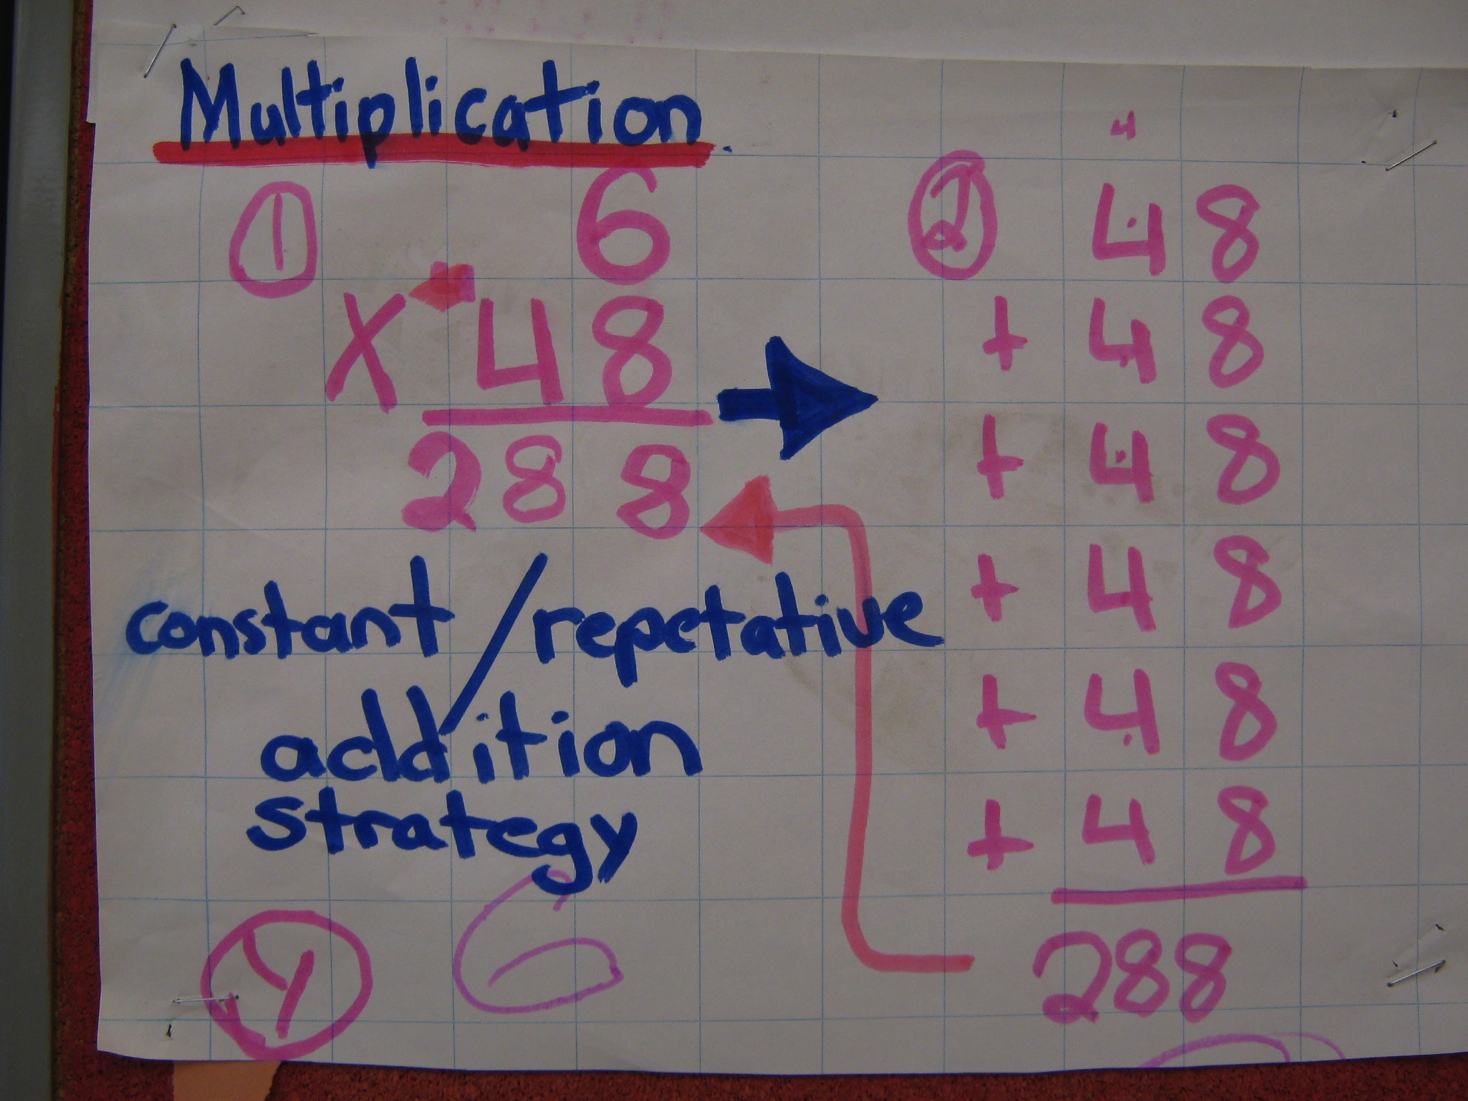 Multiplication.
① 6
X 48
288
constant/repetative
addition
strategy
Y
6
4
② 48
+ 48
+ 48
+ 48
+ 48
+ 48
288